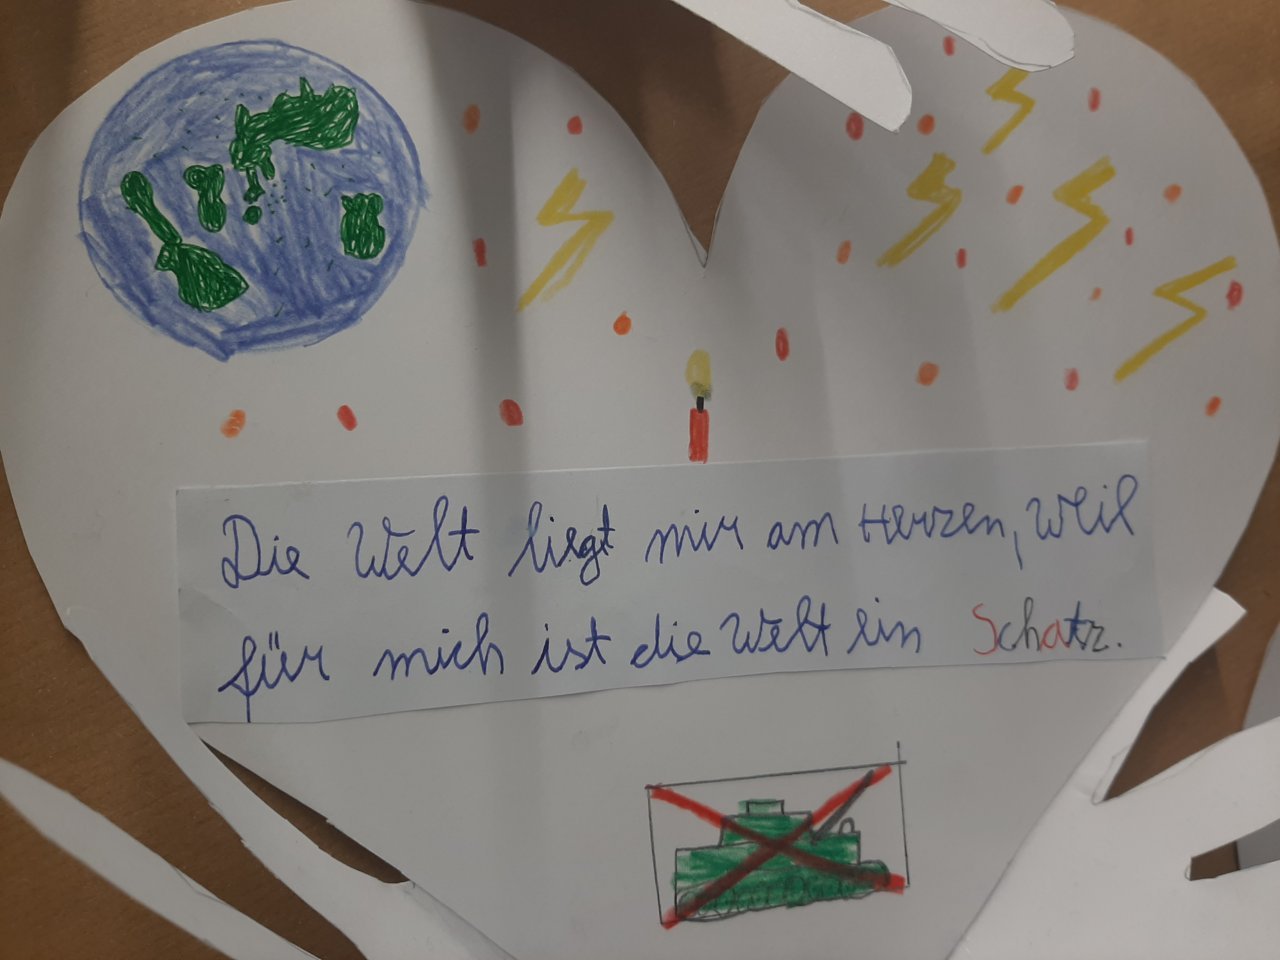 Die Welt liegt mir am Herzen, weil
für mich ist die Welt ein Schatz.